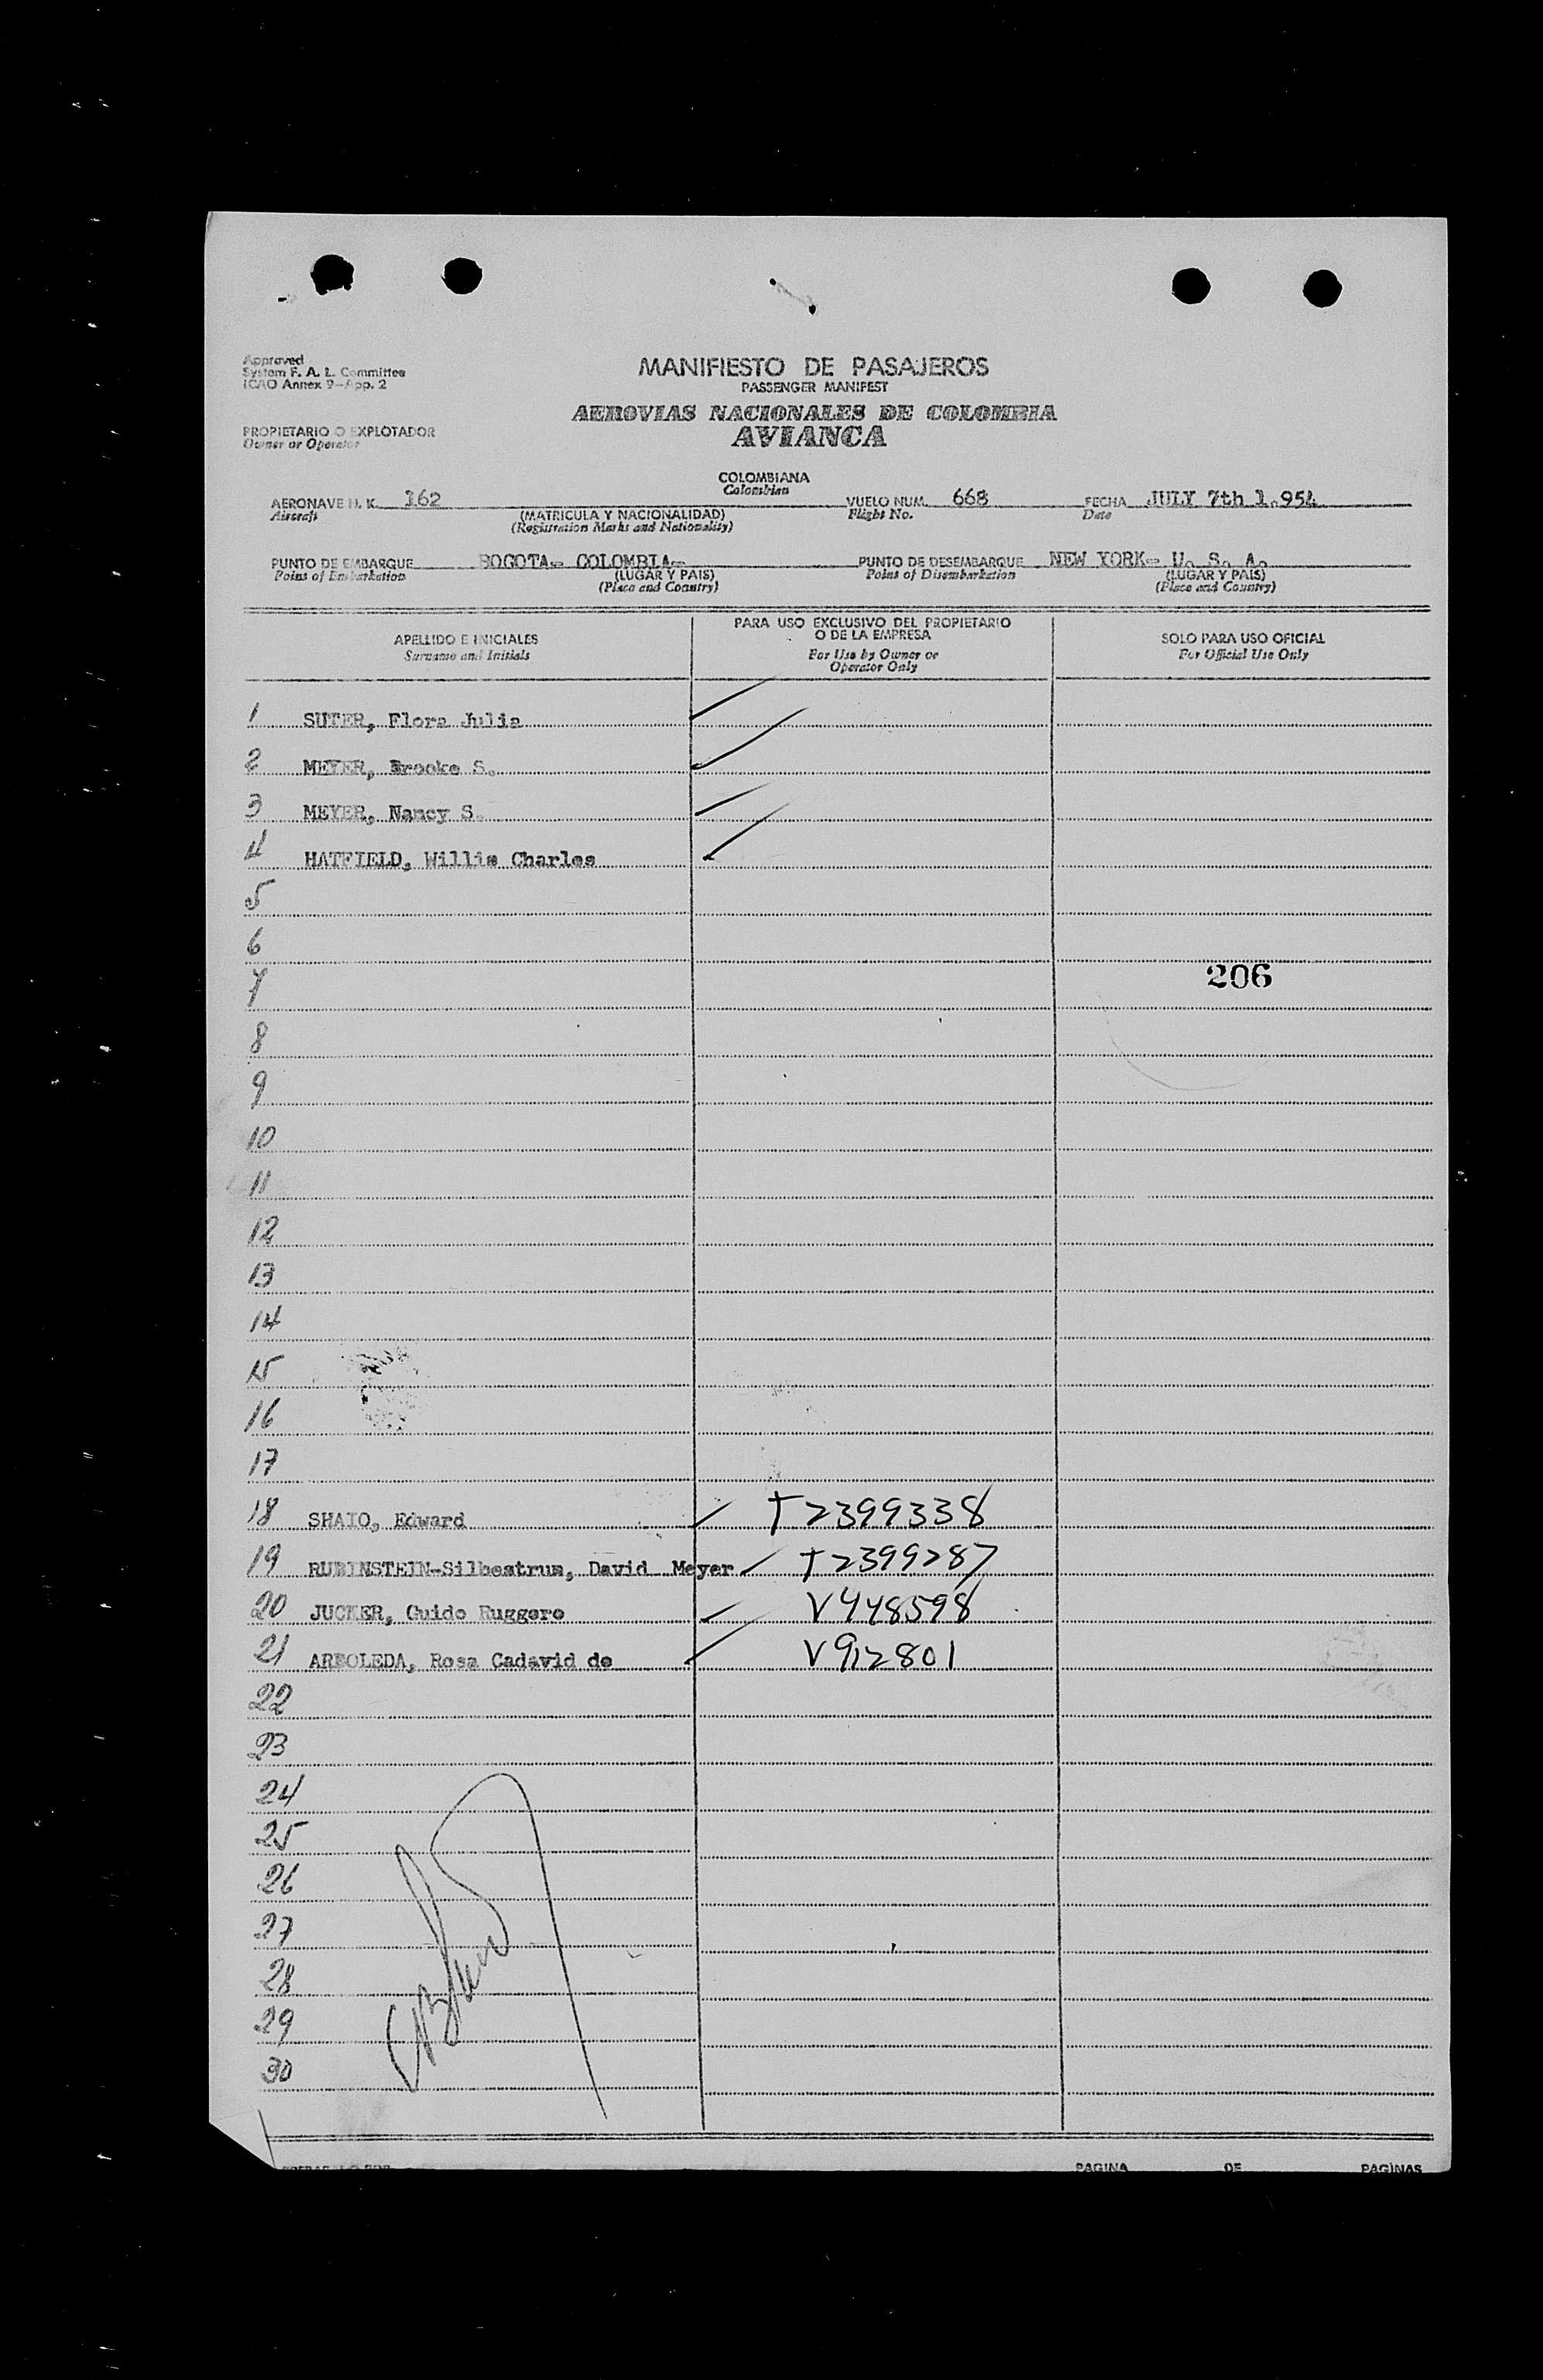 Approved
System F. A. L. Committee
ICAO Annex 9-App. 2
MANIFIESTO DE PASAJEROS
PASSENGER MANIFEST
AEROVIAS NACIONALES DE COLOMBIA
AVIANCA
PROPIETARIO O EXPLOTADOR
Owner or Operator
COLOMBIANA
Colombian
AERONAVE H. K. 162 VUELO NUM. 668 FECHA JULY 7th 1.954
Aircraft (MATRICULA Y NACIONALIDAD) Flight No. Date
(Registration Marks and Nationality)
PUNTO DE EMBARQUE BOGOTA- COLOMBIA- PUNTO DE DESEMBARQUE NEW YORK- U. S. A.
Point of Embarkation (LUGAR Y PAIS) Point of Disembarkation (LUGAR Y PAIS)
(Place and Country) (Place and Country)
APELLIDO E INICIALES
Surname and Initials
PARA USO EXCLUSIVO DEL PROPIETARIO
O DE LA EMPRESA
For Use by Owner or
Operator Only
SOLO PARA USO OFICIAL
For Official Use Only
1 SUTER, Flora Julia
2 MEYER, Brooke S.
3 MEYER, Nancy S.
4 HATFIELD, Willis Charles
5
6
7 206
8
9
10
11
12
13
14
15
16
17
18 SHAIO, Edward T2399338
19 RUBINSTEIN-Silbestrum, David Meyer T2399287
20 JUCKER, Guido Ruggero V448598
21 ARBOLEDA, Rosa Cadavid de V912801
22
23
24
25
26
27
28
29
30
PAGINA DE PAGINAS